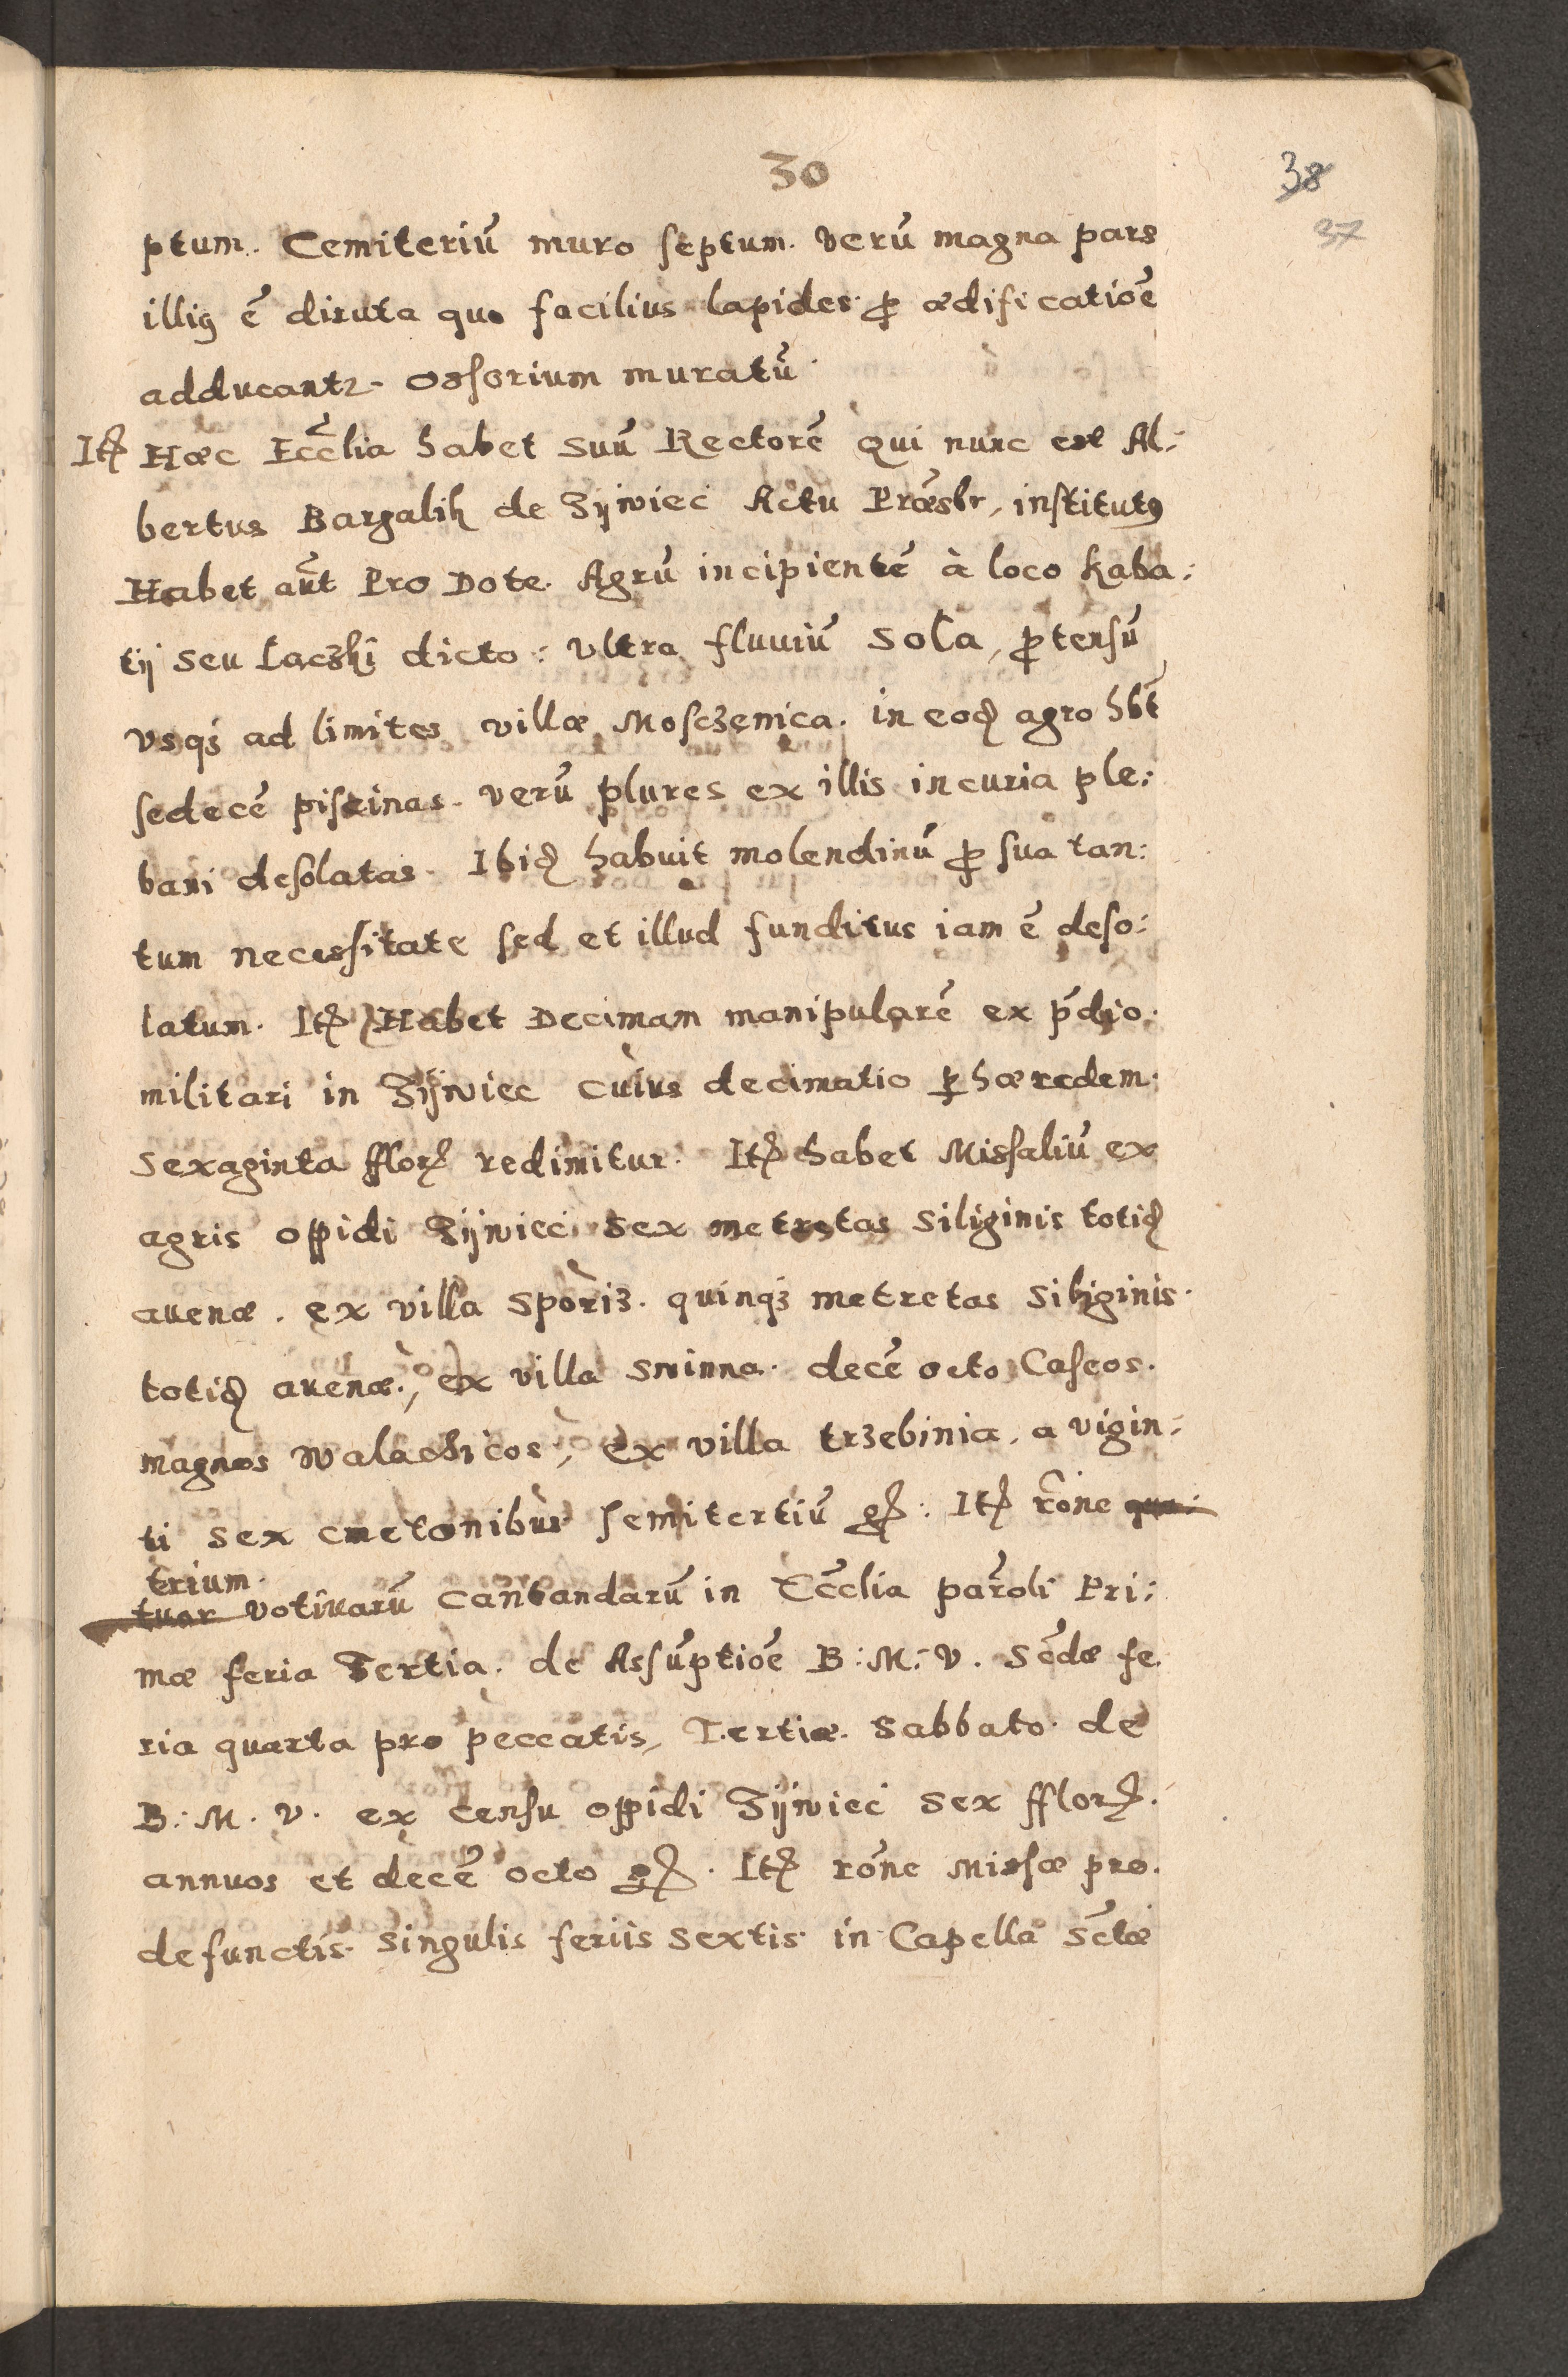 30
38
37
ptum. Cemiteriū muro septum. verū magna pars
illiꝰ ē diruta quo facilius lapides ꝓ ædificatiōe
adducantꝛ. Ossorium muratū.
Itꝭ Hæc Eccl̄ia habet suū Rectorē qui nunc est Al:
bertus Bargalik de Zÿwiec Actu Præsbr, institutꝰ
Habet aūt Pro Dote. Agrū incipientē à loco kaba:
tij seu Laczki dicto: vltra fluuiū Sola, ꝓtensū
vsqꝫ ad limites villæ Mosczenica. in eoꝺ agro hb̄t
sedecē piscinas. verū plures ex illis incuria ple:
bani desolatas. Ibiꝺ habuit molendinū ꝓ sua tan:
tum necessitate sed et illud funditus iam ē deso:
latum. Itꝭ Habet Decimam manipularē ex p̄dio.
militari in Zÿwiec cuius decimatio ꝑ hæredem.
sexaginta fflorꝭ redimitur. Itꝭ habet Missaliū ex
agris oppidi Zÿwiec sex metretas siliginis totiꝺ
auenæ. ex villa Sporis. quinqꝫ metretas siliginis.
totiꝺ auenæ., ex villa Swinna. decē octo Caseos.
magnos Walachicos, ex villa trzebinia, a vigin:
ti sex cmetonibus semitertiū gꝭ. Itꝭ rōne qua:
trium.
tuor votiuarū cantandarū in Eccl̄ia paroli Pri:
mæ feria Tertia. de Assūptiōe B: M: V. Scdæ fe.
ria quarta pro peccatis, Tertiæ. Sabbato. de
B: M. V. ex censu oppidi Zÿwiec sex fflorꝭ.
annuos et decē octo gꝭ. Itꝭ rōne Missæ pro.
defunctis. singulis feriis sextis. in Capella Sctæ